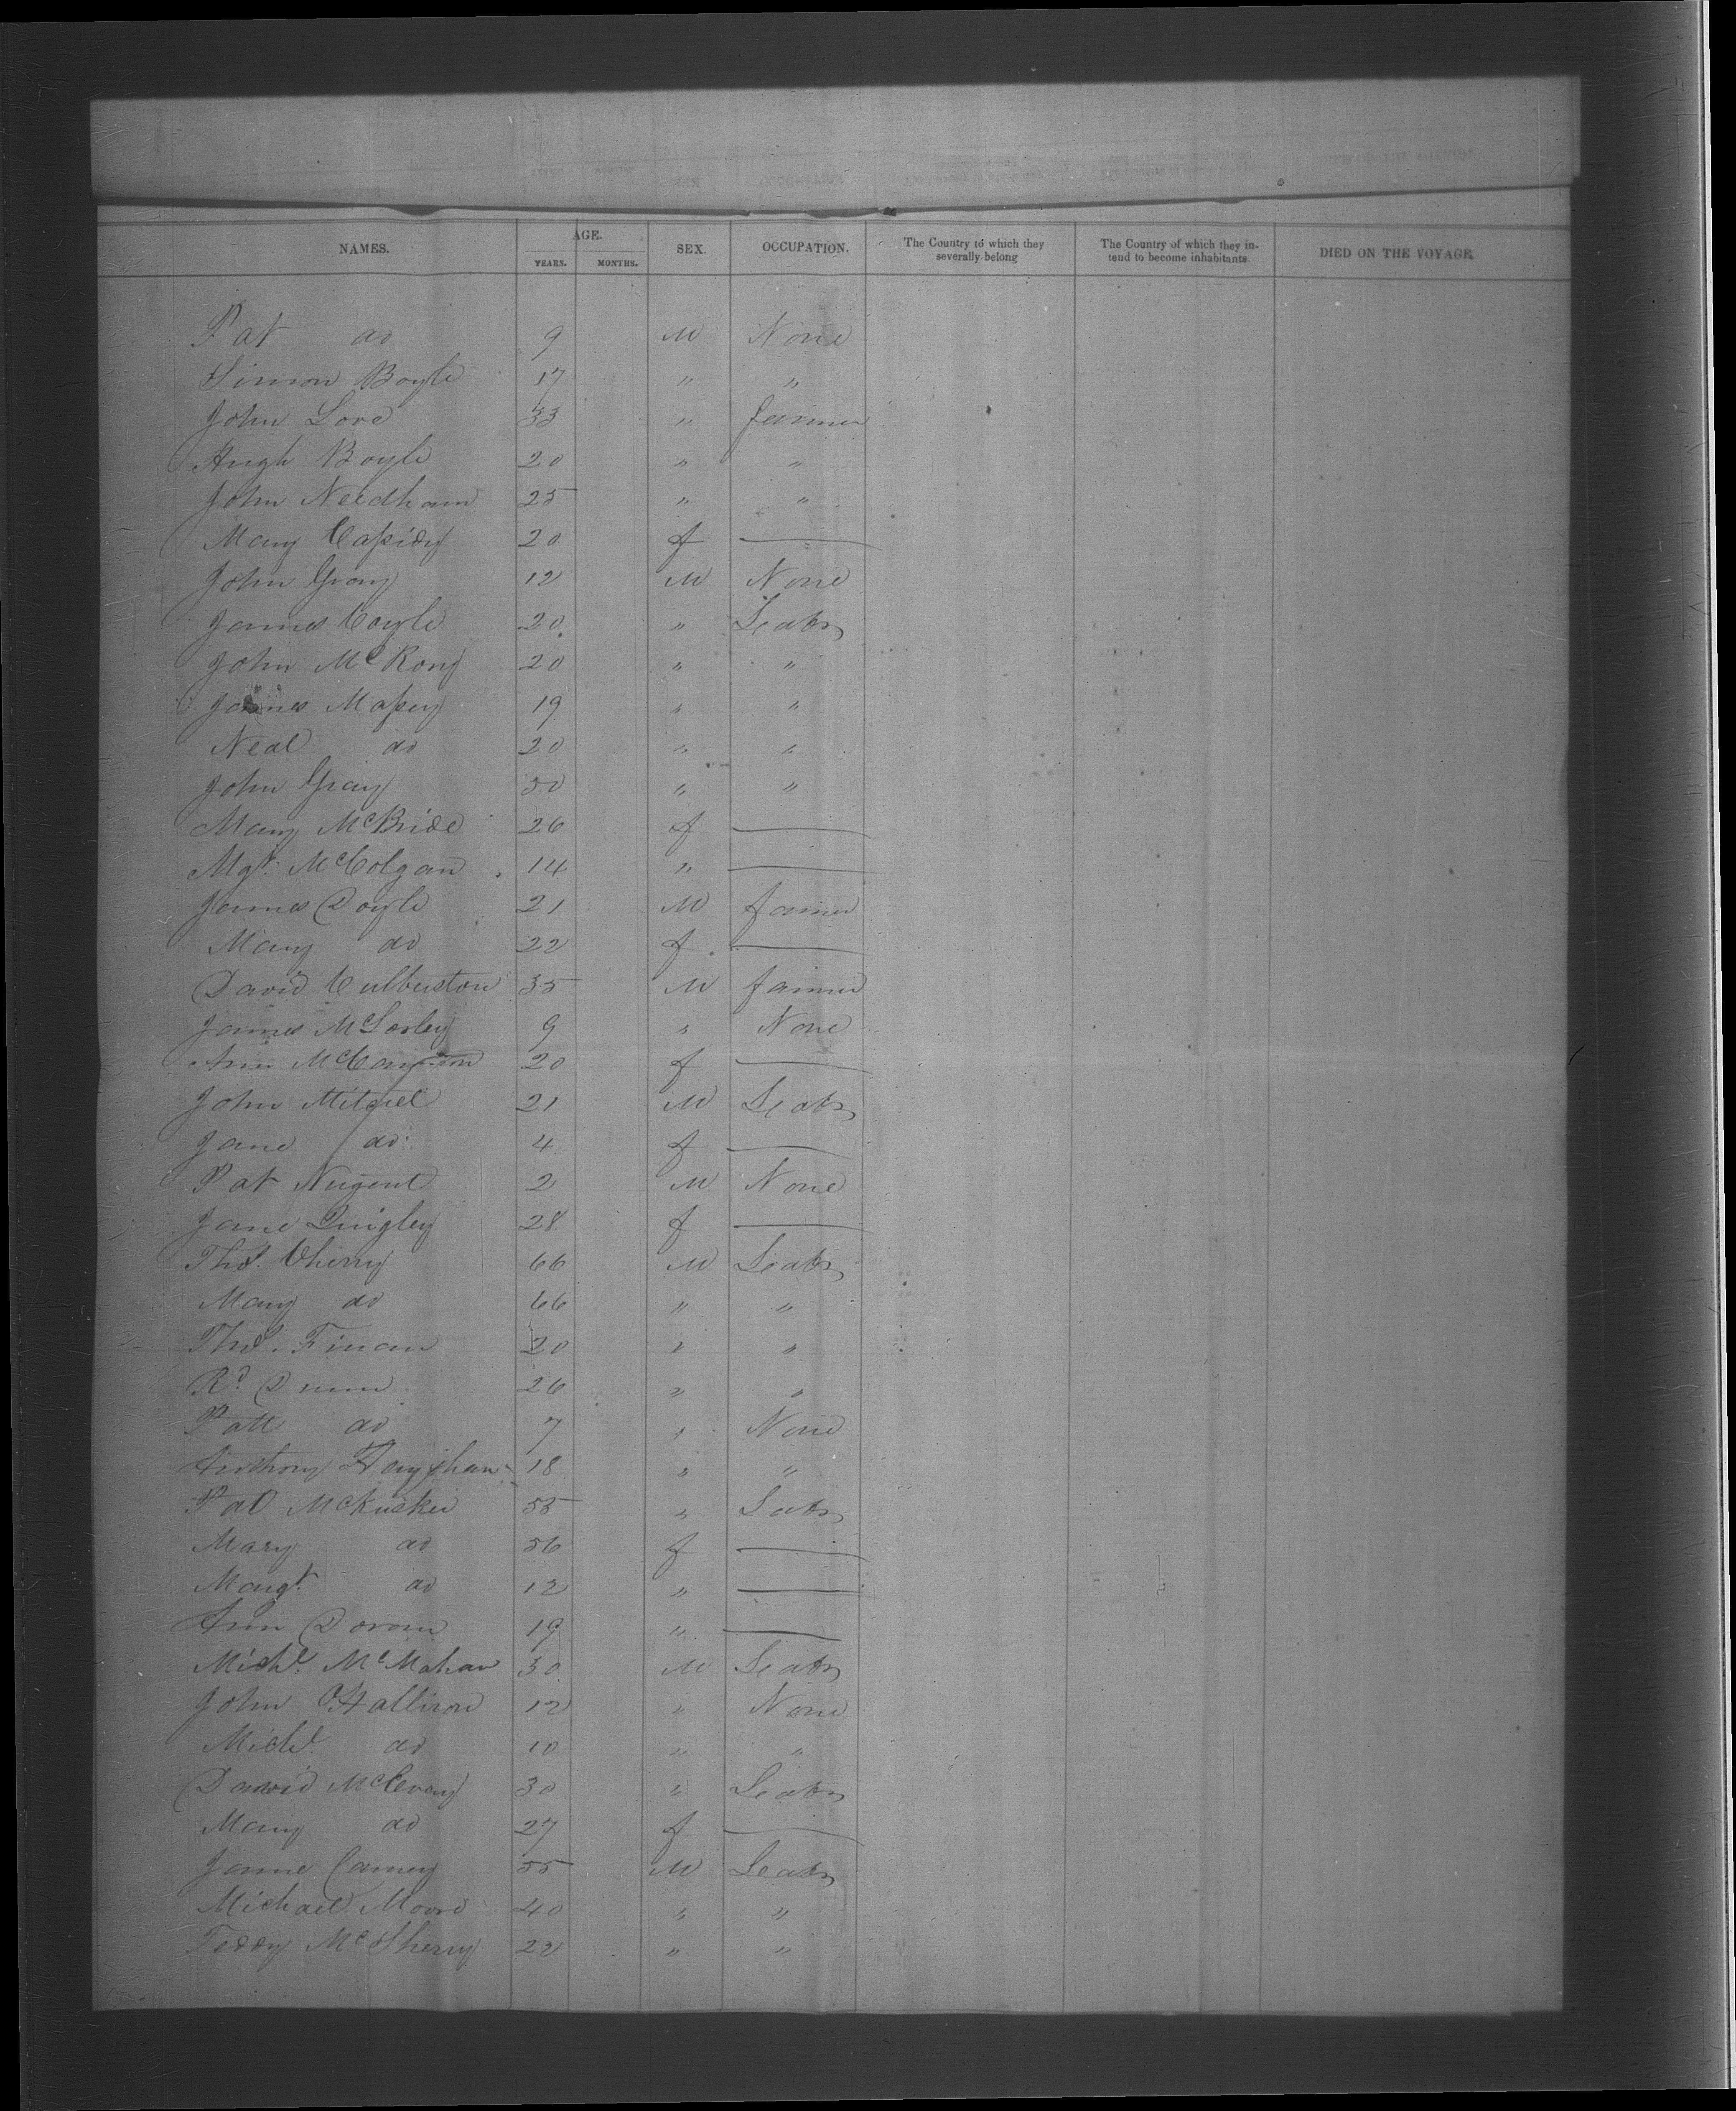 NAMES. AGE. YEARS. MONTHS. SEX. OCCUPATION. The Country to which they severally belong The Country of which they intend to become inhabitants DIED ON THE VOYAGE.
Pat do 9 M None
Simon Boyle 17 " "
John Love 33 " farmer
Hugh Boyle 20 " "
John Needham 25 " "
Mary Cassidy 20 f —
John Gray 12 M None
James Coyle 20 " Labr
John McRory 20 " "
James Massey 19 " "
Neal do 20 " "
John Gray 50 " "
Mary McBride 26 f —
Mgt. McColgan 14 " —
James Doyle 21 M farmer
Mary do 22 f —
David Culberston 35 M farmer
James McSorley 9 " None
Ann 20 f —
John Mitchel 21 M Labr
Jane do 4 f —
Pat Nugent 2 M None
Jane Quigley 28 f —
Thos. Cherry 66 M Labr
Mary do 66 " "
Thos. Finan 20 " "
Rd. Dunn 26 " "
Patt do 7 " None
Anthony 18 " "
Pat McKusker 55 " Labr
Mary do 56 f —
Margt. do 12 " —
Ann Doran 19 " —
Michl. McMahan 30 M Labr
John OHalliron 12 " None
Michl. do 10 " "
David McEvoy 30 " Labr
Mary do 27 f —
Jame Carney 55 M Labr
Michael Moore 40 " "
Teddy McSherry 22 " "